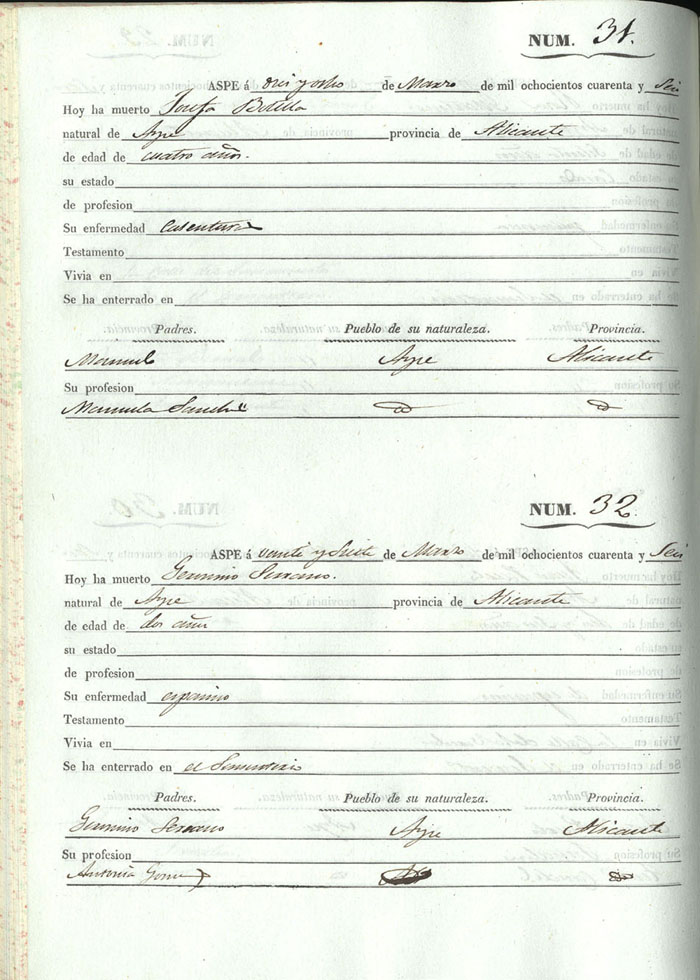 NUM. 31.
ASPE á diez y ocho de Marzo de mil ochocientos cuarenta y Seis
Hoy ha muerto Josefa Botella
natural de Aspe provincia de Alicante
de edad de cuatro años.
su estado
de profesion
Su enfermedad Calentura
Testamento
Vivia en
Se ha enterrado en
Padres. Pueblo de su naturaleza. Provincia.
Manuel Aspe Alicante
Su profesion
Manuela Sanche
NUM. 32.
ASPE á veinte y Siete de Marzo de mil ochocientos cuarenta y Seis
Hoy ha muerto Geronimo Serrano.
natural de Aspe provincia de Alicante
de edad de dos años
su estado
de profesion
Su enfermedad espasmo
Testamento
Vivia en
Se ha enterrado en el Sementerio
Padres. Pueblo de su naturaleza. Provincia.
Geronimo Serrano Aspe Alicante
Su profesion
Antonia Gomez